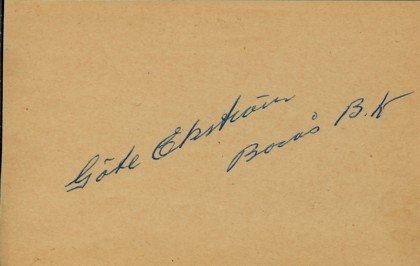 Göte Ekström
Borås B.K